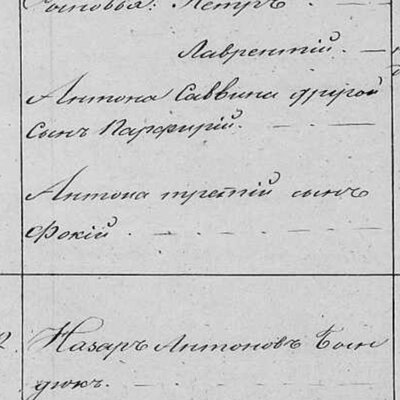 Сыновья: Петръ
Лаврентій.
Антона Саввина другой
сынъ Парфирій.
Антона третій сынъ
Фокій.
Назаръ Антоновъ Бын
дюкъ.